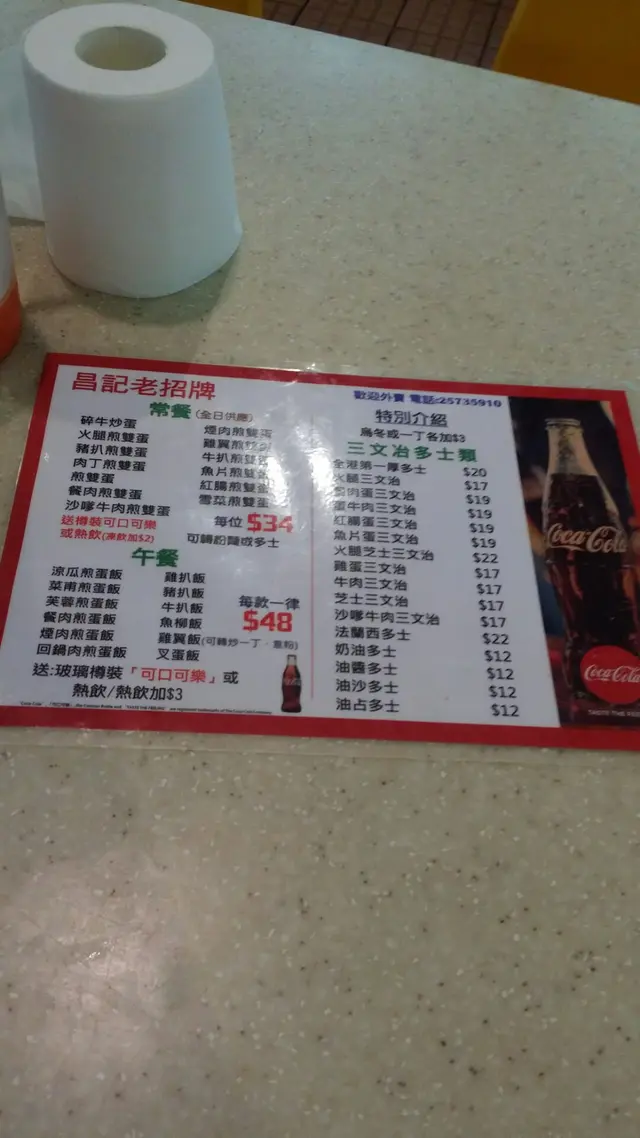 昌記老招牌
常餐 (全日供應)
碎牛炒蛋
火腿煎雙蛋
豬扒煎雙蛋
肉丁煎雙蛋
煎雙蛋
餐肉煎雙蛋
沙嗲牛肉煎雙蛋
煙肉煎雙蛋
雞翼煎雙蛋
牛扒煎雙蛋
魚片煎雙蛋
紅腸煎雙蛋
雪菜煎雙蛋
送樽裝可口可樂
或熱飲(凍飲加$2)
每位 $34
可轉粉麵或多士
午餐
涼瓜煎蛋飯
菜甫煎蛋飯
芙蓉煎蛋飯
餐肉煎蛋飯
煙肉煎蛋飯
回鍋肉煎蛋飯
雞扒飯
豬扒飯
牛扒飯
魚柳飯
雞翼飯(可轉炒一丁﹑意粉)
叉蛋飯
每款一律
$48
送:玻璃樽裝「可口可樂」或
熱飲/熱飲加$3
歡迎外賣 電話:25735910
特別介紹
烏冬或一丁各加$3
三文治多士類
全港第一厚多士 $20
火腿三文治 $17
餐肉蛋三文治 $19
蛋牛肉三文治 $19
紅腸蛋三文治 $19
魚片蛋三文治 $19
火腿芝士三文治 $22
雞蛋三文治 $17
牛肉三文治 $17
芝士三文治 $17
沙嗲牛肉三文治 $17
法蘭西多士 $22
奶油多士 $12
油醬多士 $12
油沙多士 $12
油占多士 $12
Coca-Cola
Coca-Cola